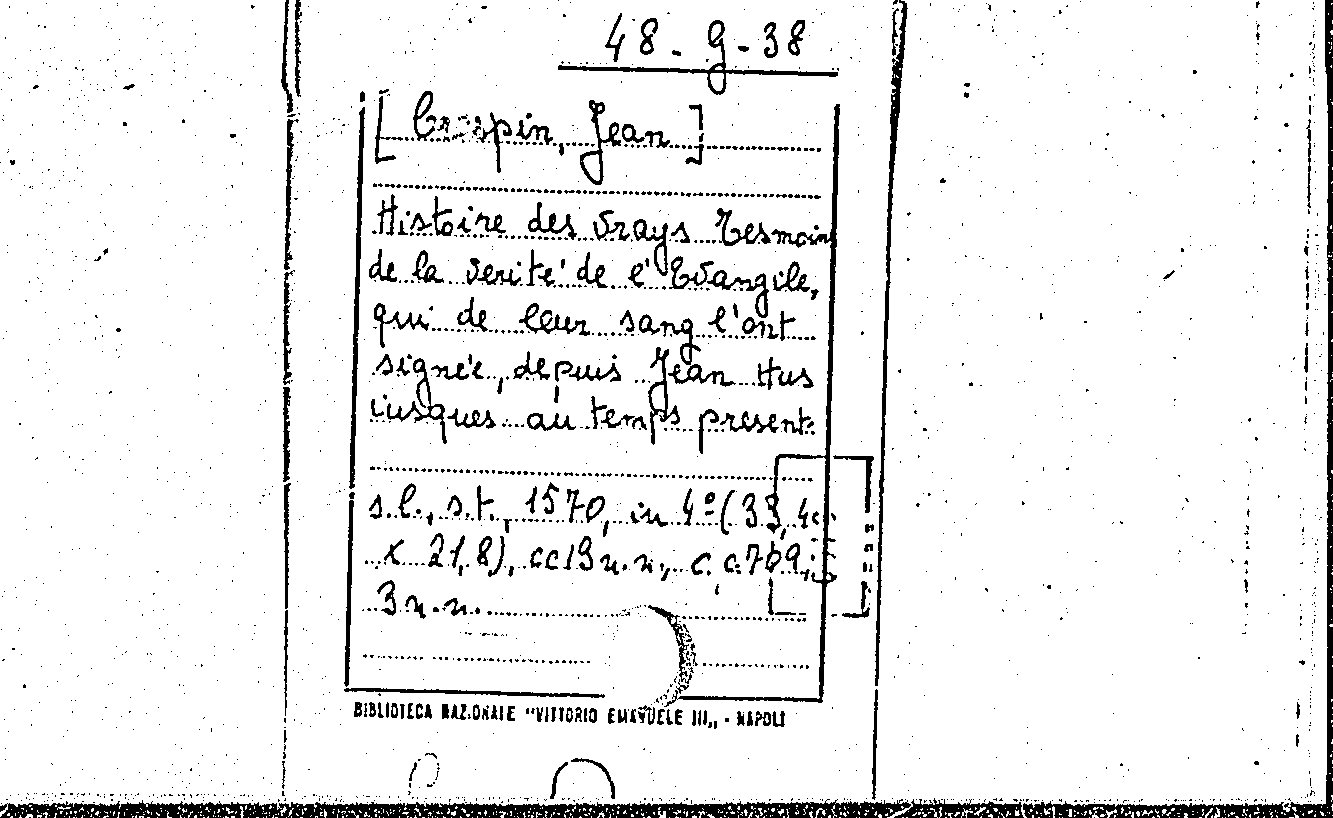 48-g-38
[Crespin, Jean]
Histoire des vrays Tesmoins
de la verité de l'Evangile,
qui de leur sang l'ont
signée, depuis Jean Hus
iusques au temps present.
s.l., s.t., 1570, in 4º (33,4
x 21,8), cc 13 n.n., c.c. 709,
3 n.n.
BIBLIOTECA NAZIONALE "VITTORIO EMANUELE III„ - NAPOLI